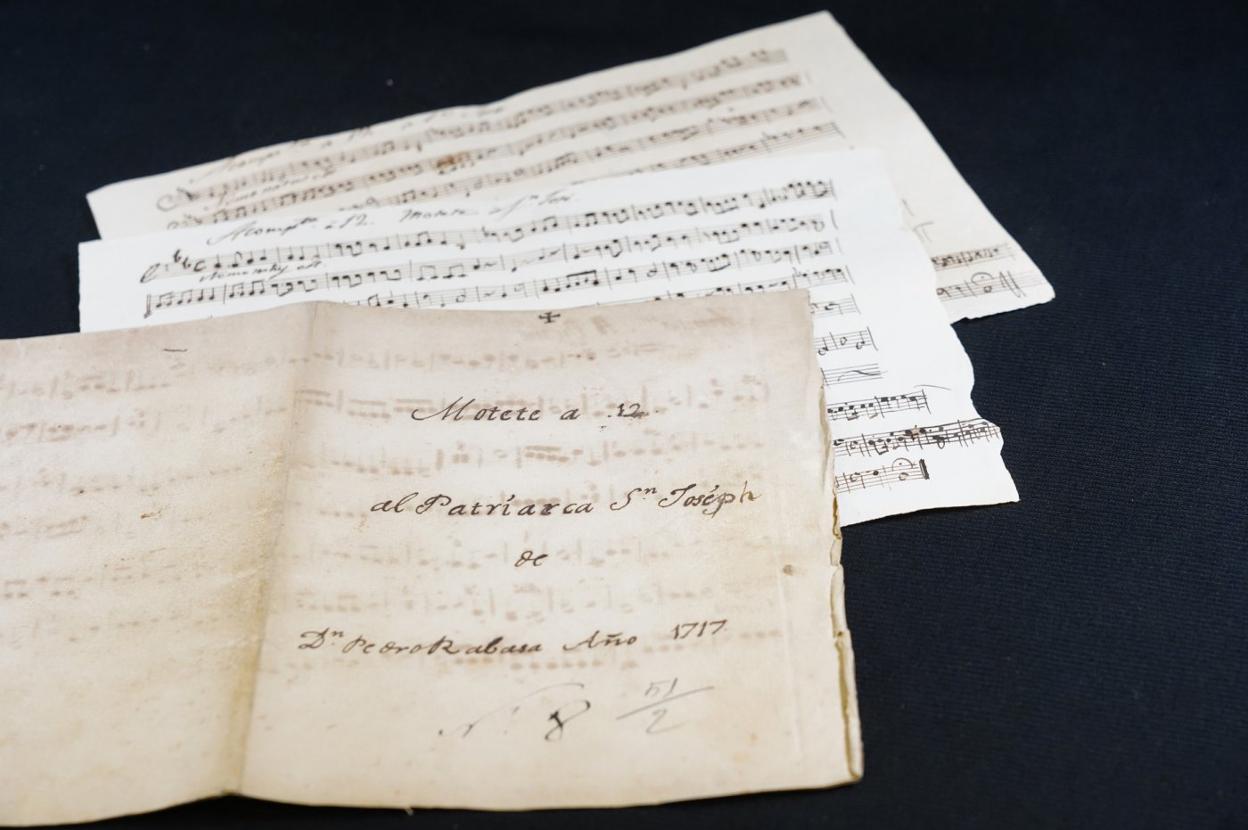 Acompto. a 12. Motete a Sn Jose.
Motete a 12.
al Patriarca Sn Joséph
de
Dn Pedro Rabasa Año 1717
N. 8 51/2